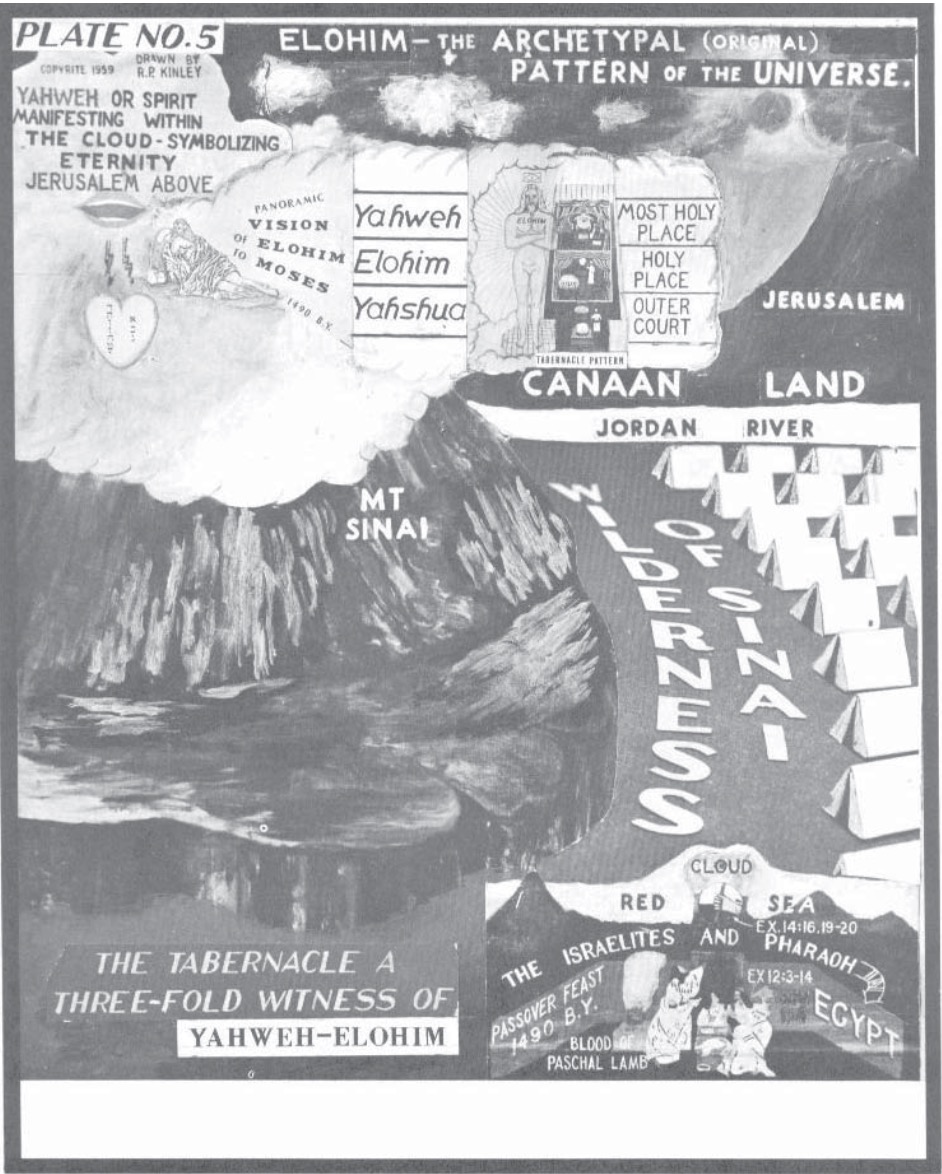 PLATE NO.5
COPYRITE 1959
DRAWN BY
R.P. KINLEY
ELOHIM - THE ARCHETYPAL (ORIGINAL)
PATTERN OF THE UNIVERSE.
YAHWEH OR SPIRIT
MANIFESTING WITHIN
THE CLOUD - SYMBOLIZING
ETERNITY
JERUSALEM ABOVE
PANORAMIC
VISION
OF ELOHIM
TO MOSES
1490 B.Y.
Yahweh
Elohim
Yahshua
ELOHIM
TABERNACLE PATTERN
MOST HOLY
PLACE
HOLY
PLACE
OUTER
COURT
JERUSALEM
CANAAN LAND
JORDAN RIVER
MT
SINAI
WILDERNESS
OF SINAI
CLOUD
RED SEA
EX.14:16,19-20
THE ISRAELITES AND PHARAOH
EX 12:3-14
PASSOVER FEAST
1490 B.Y.
EGYPT
BLOOD OF
PASCHAL LAMB
THE TABERNACLE A
THREE-FOLD WITNESS OF
YAHWEH-ELOHIM